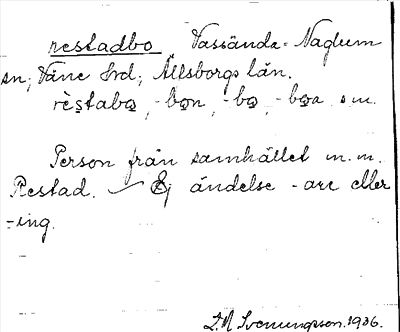 restadbo Vassända-Naglum
sn; Väne hrd; Älfsborgs län.
rèstabo, -bon, -bo, -boa sm.
Person från samhället m.m.
Restad. Ej ändelse -are eller
-ing.
1936.